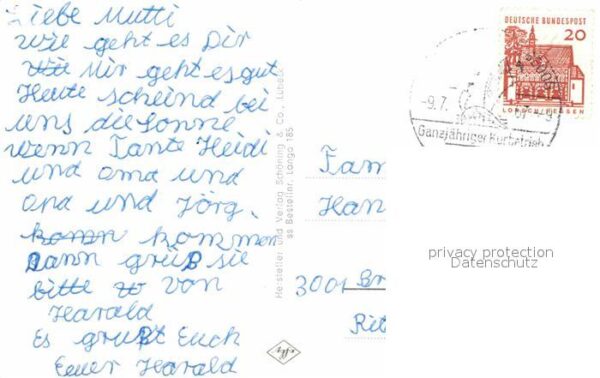 Liebe Mutti
wie geht es Dir
Mir geht es gut
Heute scheind bei
uns die Sonne
wenn Tante Heidi
und oma und
opa und Jörg.
komm kommen
Dann grüß sie
bitte von
Harald
Es grüßt Euch
Euer Harald
Hersteller und Verlag Schöning & Co., Lübeck
ss Bestellnr. Lango 185
DEUTSCHE BUNDESPOST
20
LORSCH/HESSEN
-9.7.
Ganzjähriger Kurbetrieb
Fam
Han
3001
Rit
privacy protection
Datenschutz